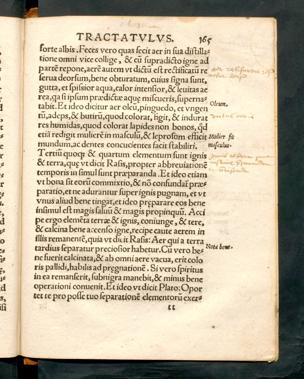 TRACTATVLVS. 165
forte albis. Feces vero quas fecit aer in sua distilla-
tione omni vice collige, & cū supradicto igne ad
partē repone, aerē autem vt dictū est rectificatū re
serua deorsum, bene obturatum, cuius signa sunt,
gutta, et spissior aqua, calor intensior, & leuitas ae
rea, qa si ipsum prædictæ aquę miscueris, superna-
tabit. Et ideo dicitur aer oleū, pinguedo, et vnguen
tū, adeps, & butirū, quod colorat, figit, & indurat
res humidas, quod colorat lapides non bonos, qd
etiā redigit mulierē in masculū, & leprosum efficit
mundum, ac dentes concucientes facit stabiliri.
Tertiū quoq & quartum elementum sunt ignis
& terra, quę vt dicit Rasis, propter abbreuiationē
temporis in simul sunt pręparanda. Et ideo etiam
vt bona sit eorū commixtio, & nō confundāt pręæ-
paratio, et ne adurantur super ignis pugnam, et vt
vnus aliud bene tingat, et ideo pręparare eos bene
insimul est magis salutū & magis propinquū. Acci
pe ergo elemēta terræ & ignis, coniunge, & tere,
& calcina bene accenso igne, recipe autē aerem in
illis remanentē, quia vt dicit Rasis: Aer qui a terra
tardius separatur preciosior habetur. Cū vero be
ne fuerit calcinata, & ab omni aere vacua, erit colo
ris pallidi, habilis ad prægnationē. Si vero spiritus
in ea remanserit, subnigra manebit, & minus bene
operationi conuenit. Et ideo vt dicit Plato: Opor
tet te pro posse tuo separationē elementorū exer-
Oleum.
Mulier fit
masculus.
Nota bene.